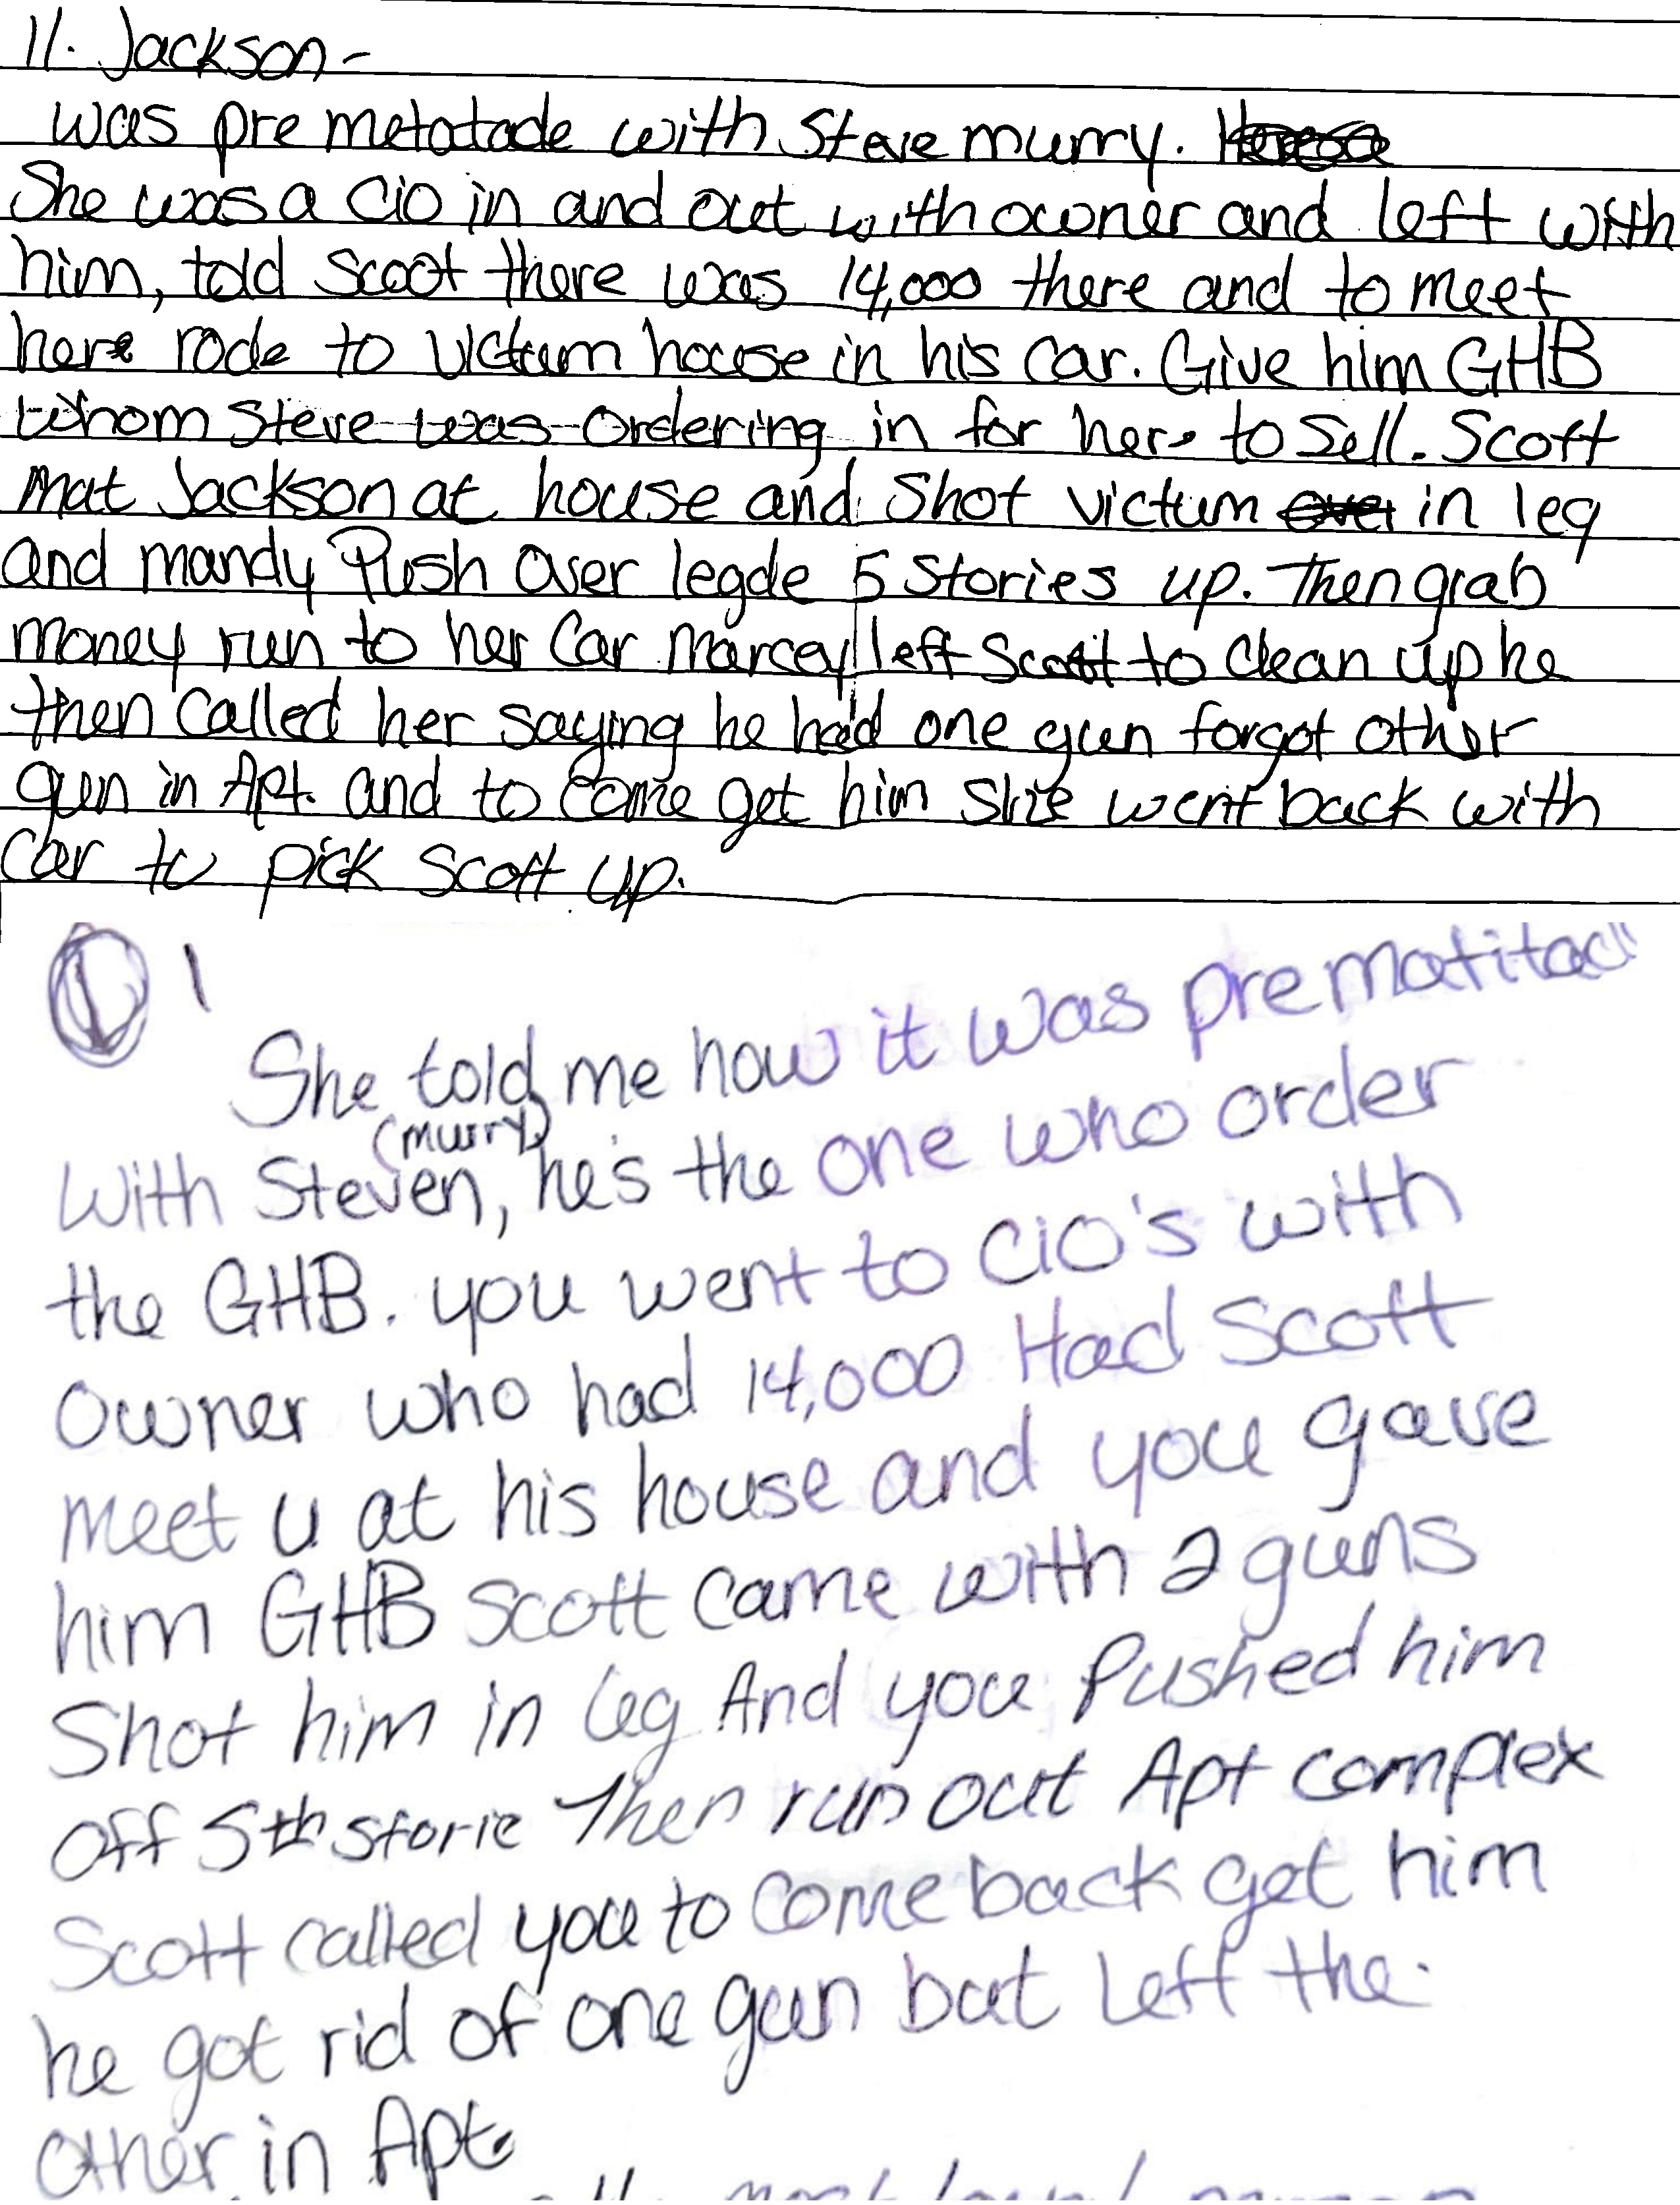 11. Jackson-
was pre metatade with Steve murry.
She was a Cio in and out with owner and left with
him, told Scoot there was 14,000 there and to meet
here rode to Victum house in his car. Give him GHB
whom Steve was ordering in for here to Sell. Scott
mat Jackson at house and Shot victum over in leg
and mandy Push over legde 5 Stories up. Then grab
money run to her Car Marcey left Scott to clean up he
then called her saying he had one gun forgot other
gun in Apt. and to come get him She went back with
Car to pick Scott up.
1
She told me how it was prematitad
(murry)
With Steven, he's the one who order
the GHB. you went to CiO's with
Owner who had 14,000 Had Scott
meet u at his house and you gave
him GHB Scott came with 2 guns
Shot him in leg And you Pushed him
Off 5th storie Then run out Apt complex
Scott called you to come back get him
he got rid of one gun but Left the
other in Apt.